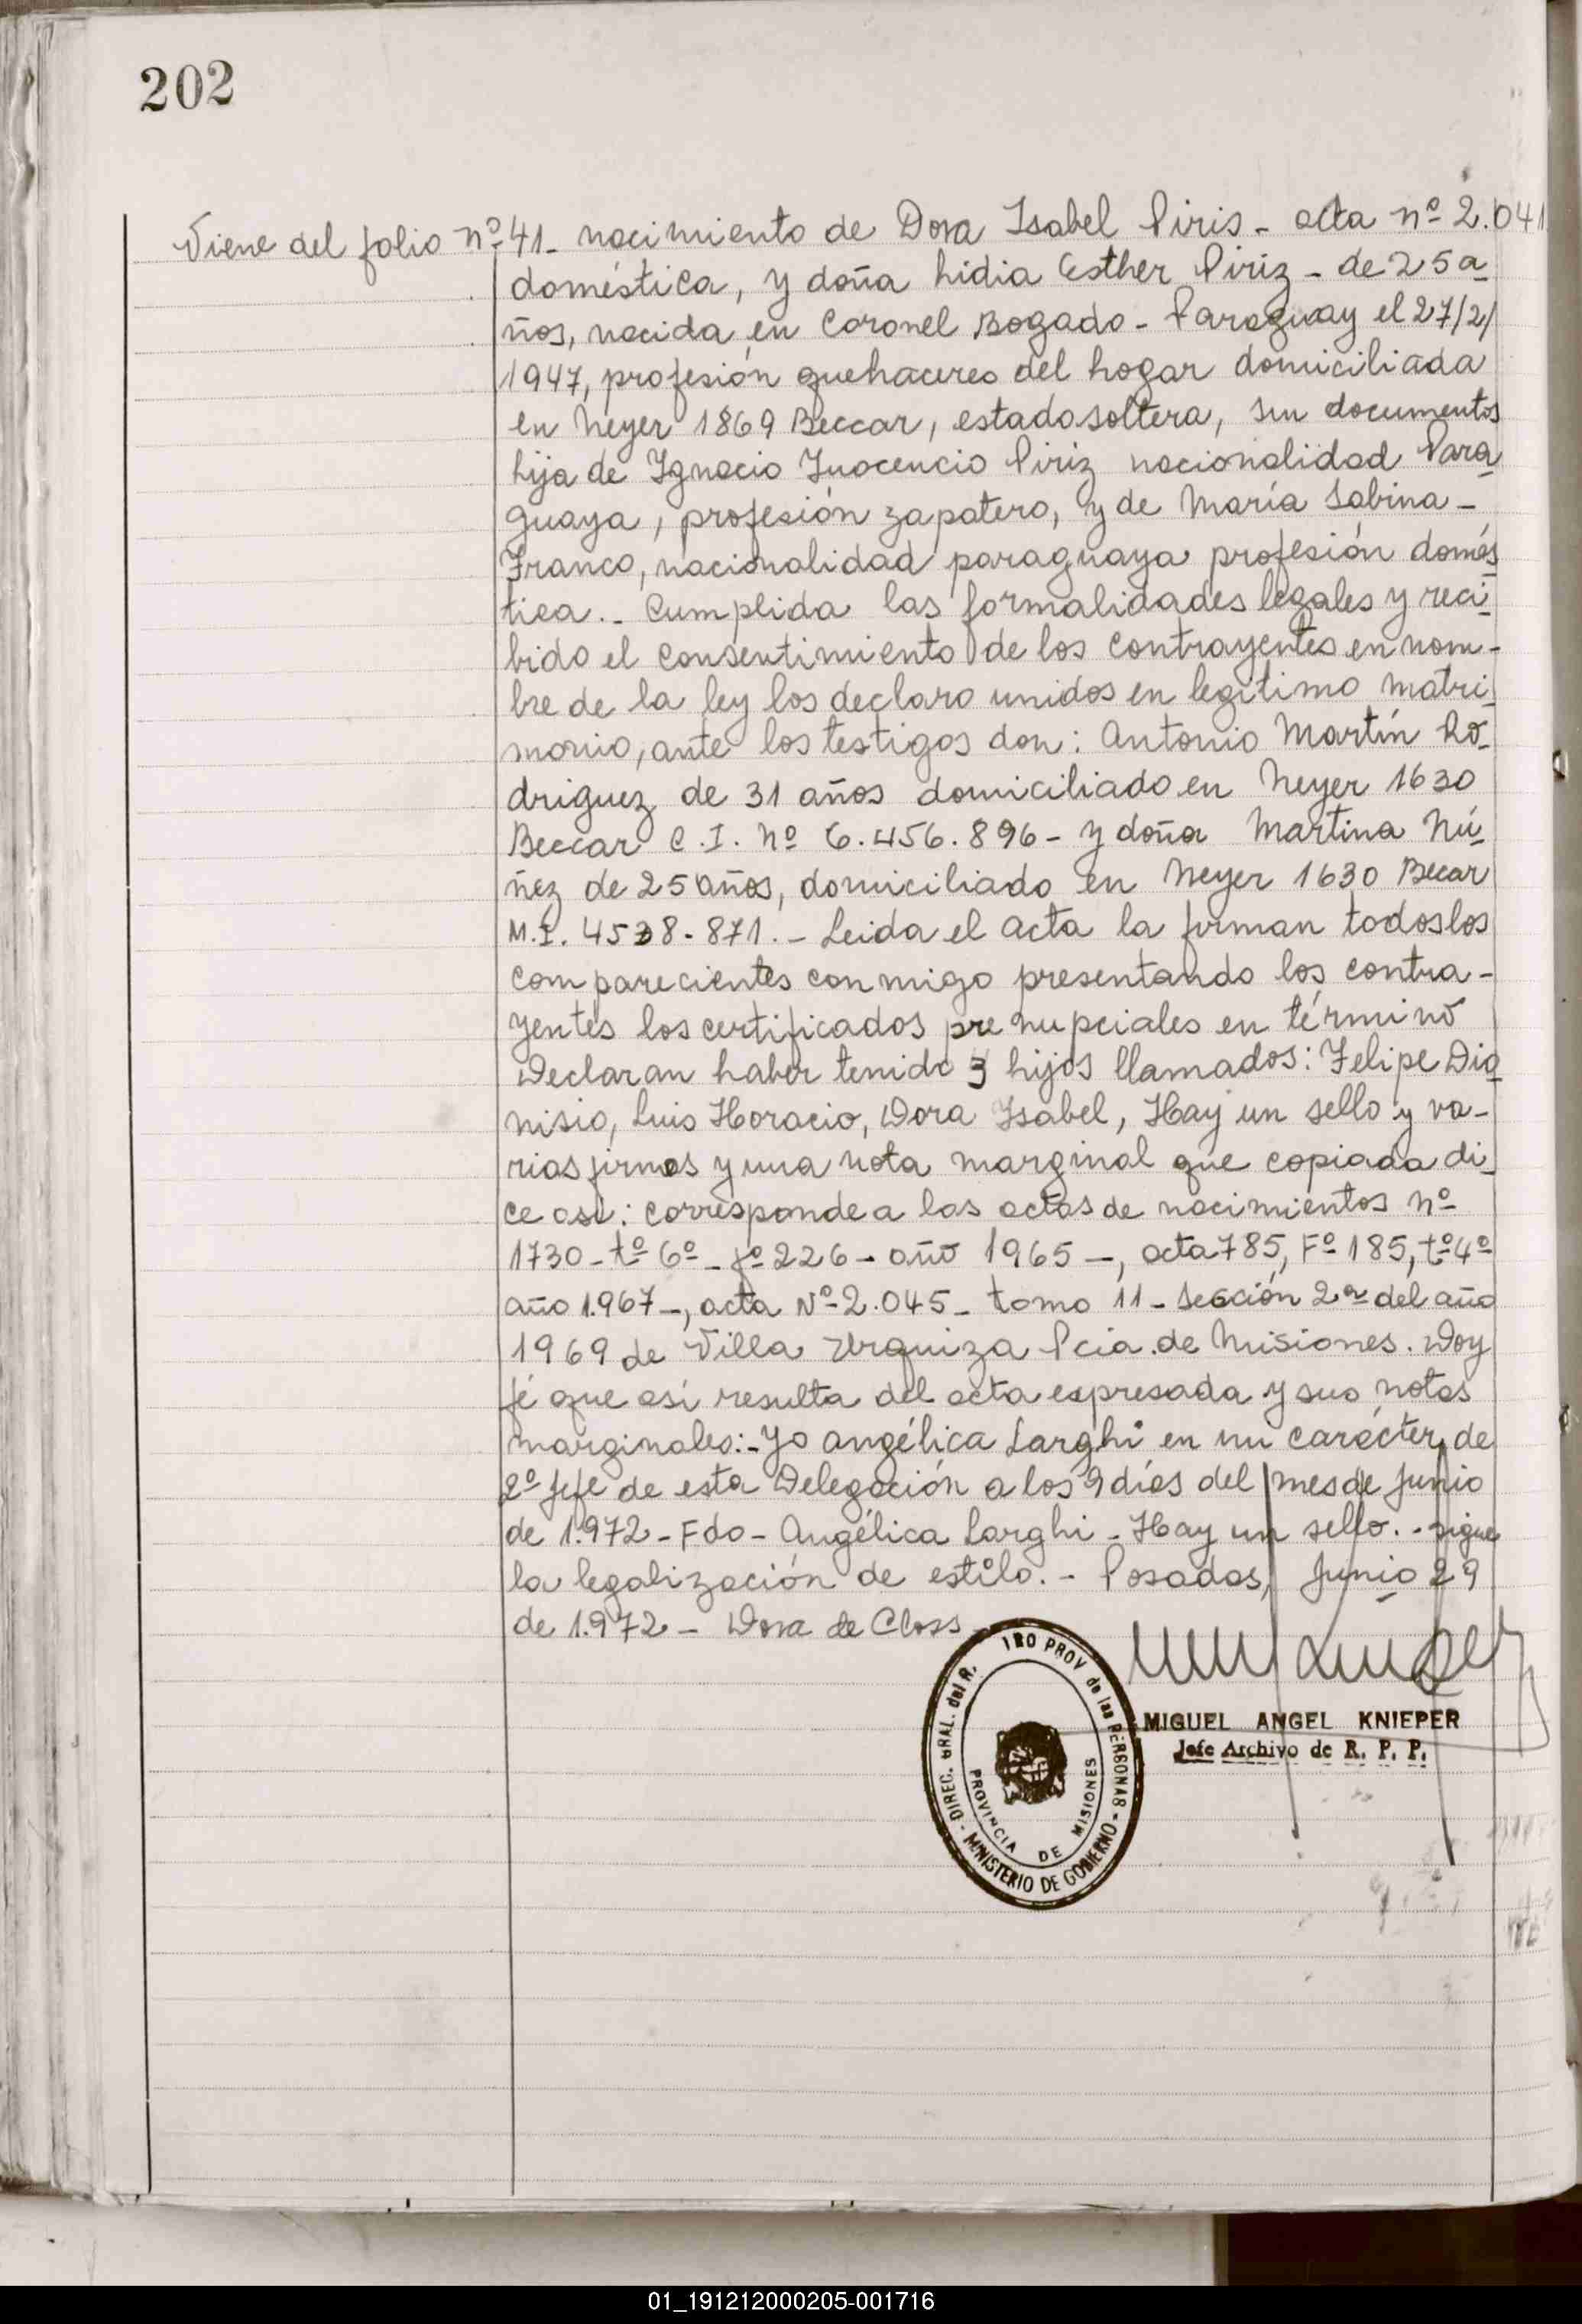 202
Viene del folio nº 41 - nacimiento de Dora Isabel Piris - acta nº 2.041
doméstica, y doña Lidia Esther Piriz - de 25 a
ños, nacida en Coronel Bogado - Paraguay el 27/2/
1947, profesión quehaceres del hogar domiciliada
en Neyer 1869 Beccar, estado soltera, sin documentos
hija de Ignacio Inocencio Piriz nacionalidad Para
guaya, profesión zapatero, y de María Sabina -
Franco, nacionalidad paraguaya profesión domés
tica. - Cumplida las formalidades legales y reci
bido el consentimiento de los contrayentes en nom-
bre de la ley los declaro unidos en legítimo matri
monio, ante los testigos don: Antonio Martín Ro
driguez de 31 años domiciliado en Neyer 1630
Beccar C.I. Nº 6.456.896 - y doña Martina Nú
ñez de 25 años, domiciliado en Neyer 1630 Becar
M.I. 4538-871. - Leida el acta la firman todos los
comparecientes conmigo presentando los contra-
yentes los certificados pre nupciales en término
Declaran haber tenido 3 hijos llamados: Felipe Dio
nisio, Luis Horacio, Dora Isabel, Hay un sello y va-
rias firmas y una nota marginal que copiada di
ce así: corresponde a las actas de nacimientos nº
1730 - tº 6º - fº 226 - año 1965 -, acta 785, Fº 185, tº 4º
año 1.967 -, acta Nº 2.045 - tomo 11 - Sección 2ª del año
1969 de Villa Urquiza Pcia. de Misiones. Doy
fé que así resulta del acta expresada y sus notas
marginales: - Yo Angélica Larghi en mi carácter de
2º Jefe de esta Delegación a los 9 días del mes de Junio
de 1.972 - Fdo - Angélica Larghi - Hay un sello. - sigue
la legalización de estilo. - Posadas, Junio 29
de 1.972 - Dora de Closs
DIREC. GRAL. del R. PROV de las PERSONAS - MINISTERIO DE GOBIERNO -
PROVINCIA DE MISIONES
MIGUEL ANGEL KNIEPER
Jefe Archivo de R. P. P.
01_191212000205-001716